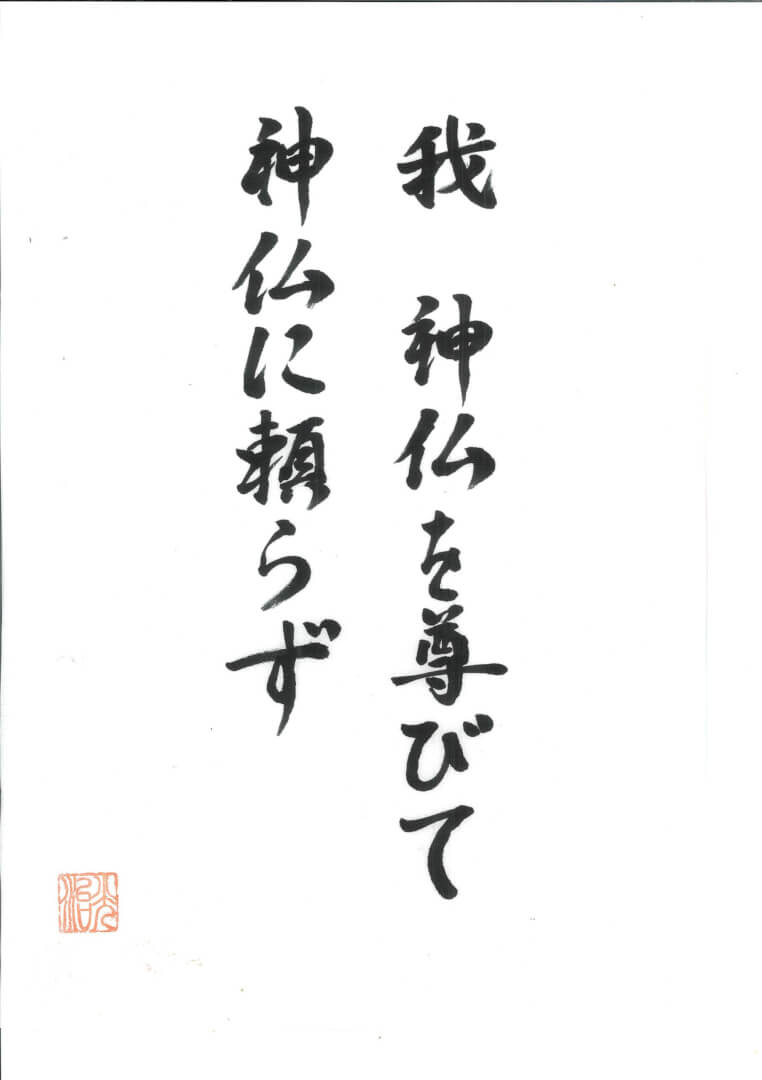 我　神仏を尊びて
神仏に頼らず